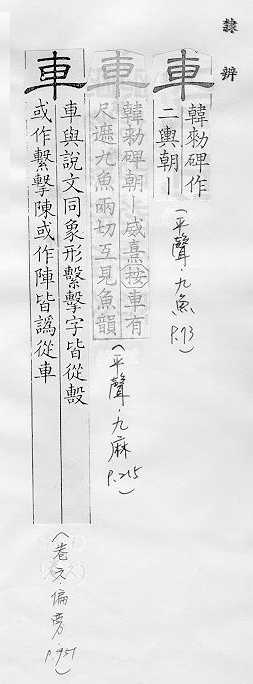 隸辨
車
韓勑碑作
二輿朝〡
(平聲.九魚 P.73)
車
韓勑碑朝〡威熹按車有
尺遮九魚兩切互見魚韻
(平聲.九麻 P.215)
車
車與說文同象形繫擊字皆從毄
或作繫擊陳或作陣皆譌從車
(卷六.偏旁 P.951)